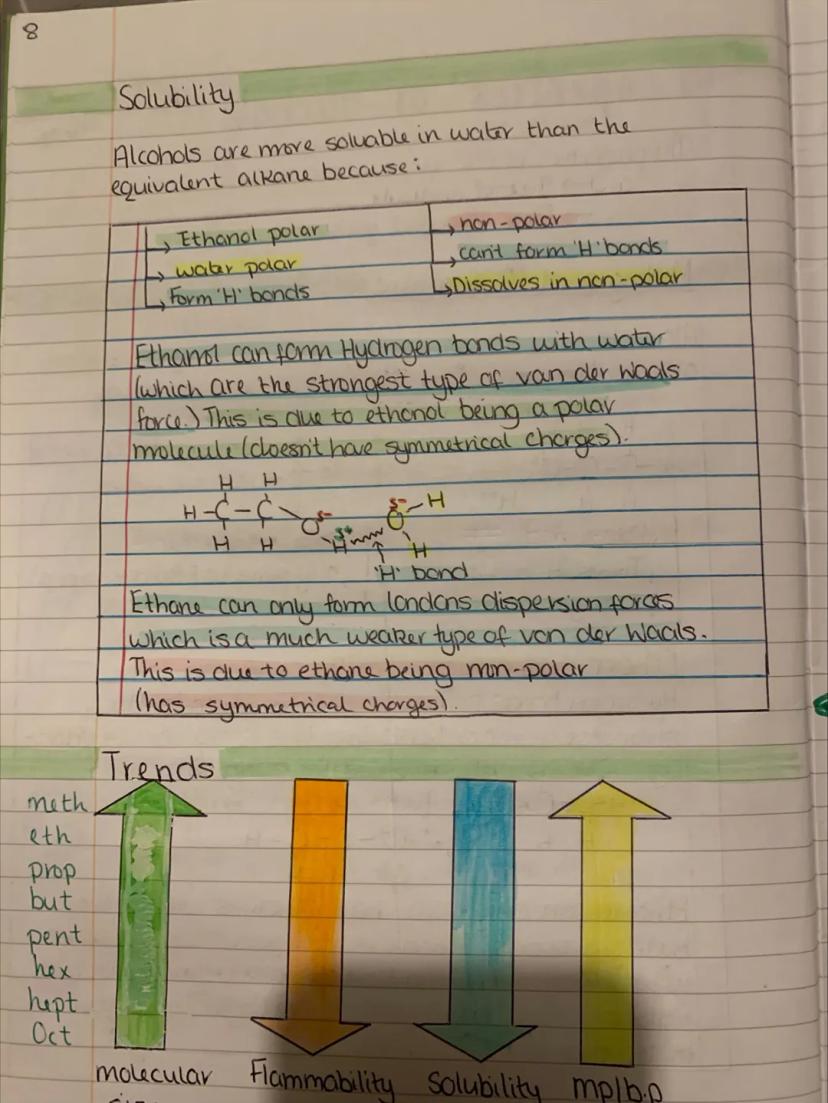 8
Solubility
Alcohols are more soluable in water than the
equivalent alkane because:
↳ Ethanol polar
↳ water polar
↳ Form 'H' bonds
↳ non-polar
↳ can't form 'H' bonds
↳ Dissolves in non-polar
Ethanol can form Hydrogen bonds with water
(which are the strongest type of van der Waals
force.) This is due to ethanol being a polar
molecule (doesn't have symmetrical charges).
H H
H-C-C-O δ- δ- O-H
H H H δ+ H
'H' bond
Ethane can only form londons dispersion forces
which is a much weaker type of van der Waals.
This is due to ethane being non-polar
(has symmetrical charges).
Trends
meth
eth
prop
but
pent
hex
hept
Oct
molecular
Flammability
Solubility
mp/b.p